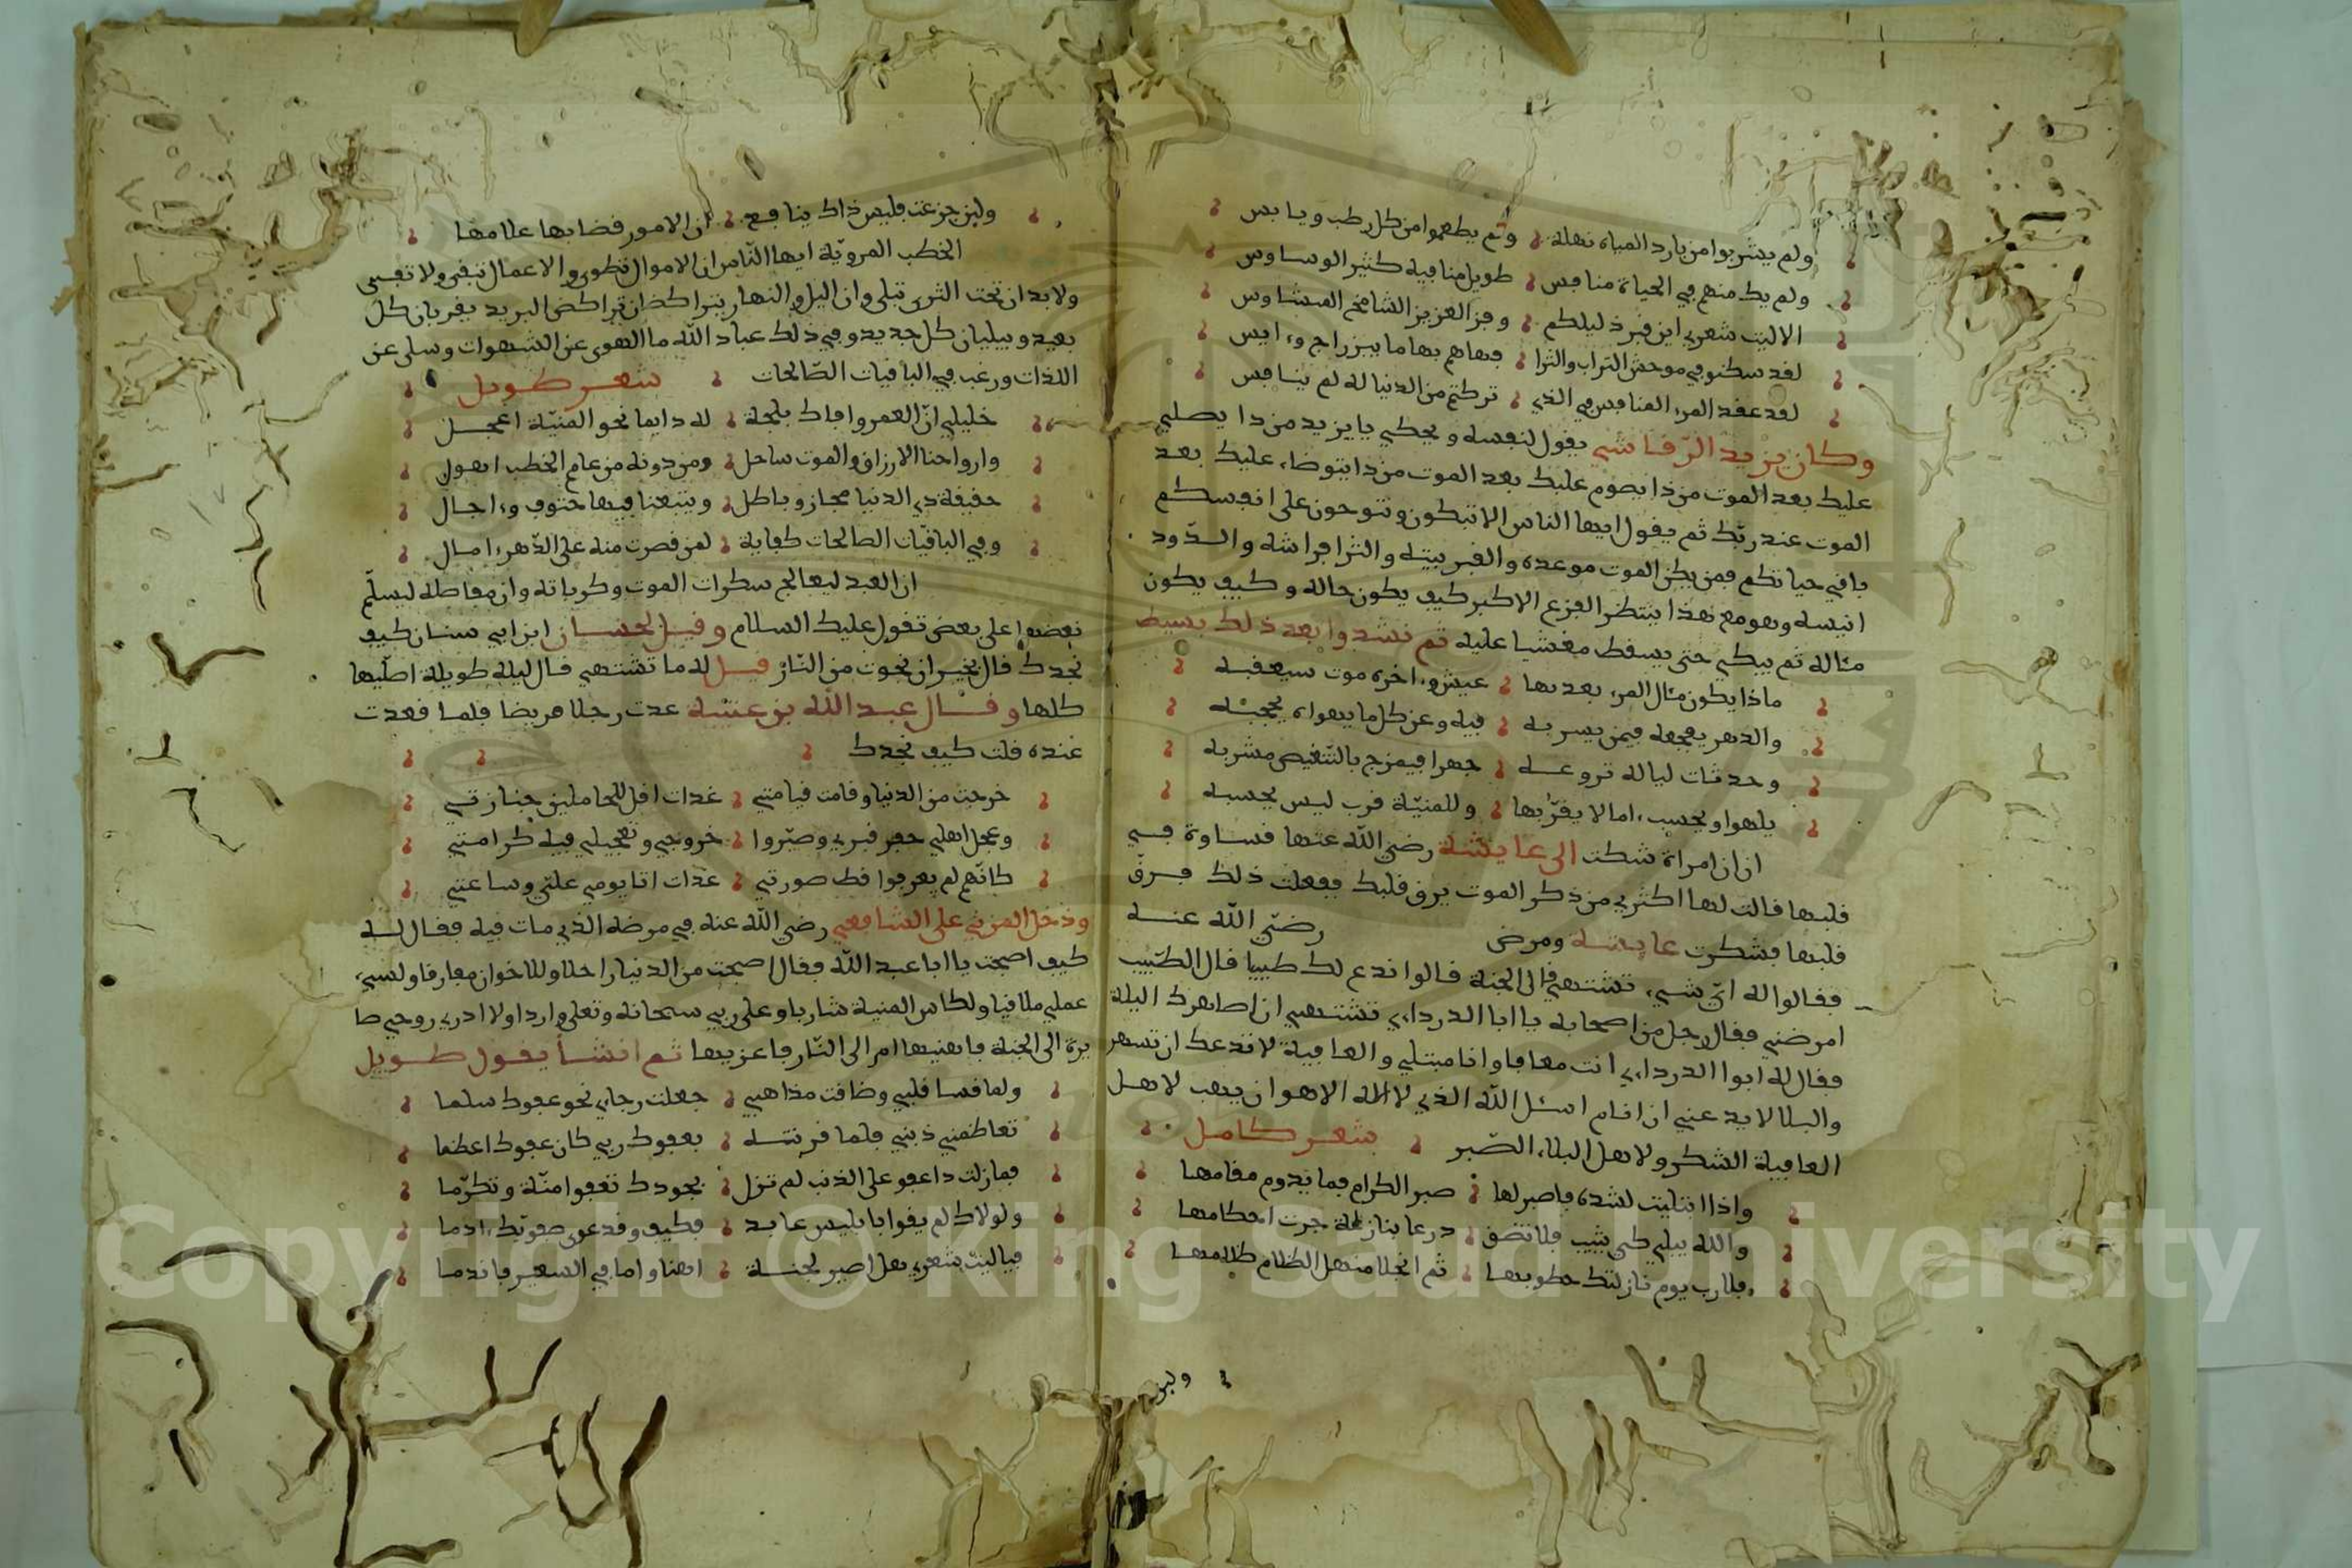 ولم يشربوا من بارد المياه نهلة ولم يطعموا من كل رطب ويابس
ولم يك منهم في الحياة منافس طويل منا فيه كثير الوساوس
الا ليت شعري اين قبر ذليلكم وقبر العزيز الشامخ المتشاوس
لقد سكنو في موحش التراب والثرا فهاهم بها ما بين راج وءايس
لقد عقد المرء المنافس في الذي تركتم من الدنيا له لم ينافس
وكان يزيد الرقاشي يقول لنفسه ويحكي يا يزيد من ذا يصلي
عليك بعد الموت من ذا يصوم عليك بعد الموت من ذا يتوضاء عليك بعد
الموت عند ربّك ثم يقول ايها الناس الا تبكون وتنوحون على انفسكم
باقي حياتكم فمن يكن الموت موعده والقبر بيته والثرا فراشه والدّود
انيسه وهو مع هذا ينتظر الفزع الاكبر كيف يكون حاله وكيف يكون
مئاله ثم يبكي حتى يسقط مغشيا عليه ثم نشدوا بعد ذلك بسيط
ماذا يكون مئال المرء بعد بها عيش وءاخره موت سيعقبه
والدهر يفجعه فيمن يسر به فيه وعن كل ما يهواه يحجبه
وحدثات لياله تروعه جهرا فيمزج بالتنغيص مشربه
يلهوا ويحسب ءامالا يقرّبها وللمنيّة قرب ليس يحسبه
ان ان امراة شكت الى عايشة رضي الله عنها قساوة في
قلبها قالت لها اكثري من ذكر الموت يرق قلبك ففعلت ذلك فرقّ
قلبها فشكرت عايشة ومرض رضي الله عنه
فقالوا له ايّ شيء تشتهي قال الجنة قالوا ندع لك طبيبا قال الطّبيب
امرضني فقال رجل من اصحابه يا ابا الدرداءي تشتهي ان اصاهرك اليلة
فقال له ابوا الدرداءي انت معافا وانا مبتلي والعافية لا تدعك ان تسهر
والبلا لا يدعني ان انام اسئل الله الذي لا اله الا هو ان يهب لاهل
العافية الشكر ولاهل البلاء الصّبر شعر كامل
واذا ابتليت لشدة فاصبر لها صبر الكرام فما يدوم مقامها
والله يبلي كي يثيب فلا تضق درعا بنازلة جرت احكامها
فلارب يوم نازلتك خطوبها ثم انجلا منهل الظلام ظلامها
ولين
ولين جزعت فليس ذاك ينافع ان الامور قضا بها علامها
الخطب المرويّة ايها النّاس ان الاموال تطوى والاعمال تبقى ولا تفنى
ولا بدان تحت الثرى تبلى وان اليل والنهار يتراكضان تراكض البريد يقربان كل
بعيد ويبليان كل جديد وفي ذلك عباد الله ما الهوى عن الشهوات وسلى عن
اللذات ورغب في الباقيات الصّالحات شعر طويل
خليلي انّ العمر وافاك بلمحة له دايما نحو المنيّة اعجل
وارواحنا الارزاق والموت ساحل ومن دونه من عام الخطب اهول
حقيقة ذي الدنيا مجاز وباطل ويتبعنا فيها حتوف وءاجال
وفي الباقيات الصالحات كفاية لمن قصرت منه على الدّهر ءامال
ان العبد ليعالج سكرات الموت وكرباته وان مفاصله ليسلّم
بعضها على بعض تقول عليك السلام وقيل لحسان ابن ابي سنان كيف
تجدك قال بخير ان نجوت من النّار قيل له ما تشتهي قال ليلة طويلة اصلّيها
كلها وقال عبد الله بن عتبة عدت رجلا مريضا فلما قعدت
عنده قلت كيف تجدك
خرجت من الدنيا وقامت قيامتي غدات اقل للحاملين جنازتي
وعجل اهلي حفر قبري وصيّروا خروجي وتعجيلي فيه كرامتي
كانّهم لم يعرفوا قط صورتي غدات اتا يومي علتي وساعتي
ودخل المزني على الشافعي رضي الله عنه في مرضه الذي مات فيه فقال له
كيف اصبحت يا ابا عبد الله فقال اصبحت من الدنيا راحلا وللاخوان مفارقا ولسيء
عملي ملاقيا ولكاس المنية شاربا وعلى ربي سبحانه وتعلى واردا ولا ادري روحي صا
يرة الى الجنة فاهنيها ام الى النّار فاعزيها ثم انشأ يقول طويل
ولما قسا قلبي وضاقت مذاهبي جعلت رجاءي نحو عفوك سلما
تعاظمني ذنبي فلما قرنته بعفوك ربي كان عفوك اعظما
فما زلت ذا عفو على الذنب لم تزل بجودك تعفوا منّة وتكرّما
ولولاك لم يغوا بابليس عابد فكيف وقد غوى صفويّك ءادما
فياليت شعري هل اصير لجنة اهنا واما في السعير فاندما